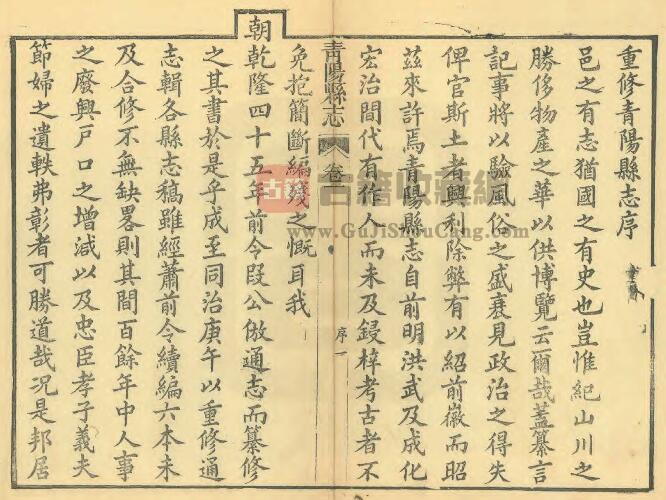 重修青陽縣志序
邑之有志猶國之有史也豈惟紀山川之
勝侈物産之華以供博覽云爾哉蓋纂言
記事將以驗風俗之盛衰見政治之得失
俾官斯土者興利除弊有以紹前徽而昭
茲來許焉青陽縣志自前明洪武及成化
宏治間代有作人而未及鋟梓考古者不
青陽縣志 卷 序一
免抱簡斷編殘之慨耳我
朝乾隆四十五年前令段公倣通志而纂修
之其書於是乎成至同治庚午以重修通
志輯各縣志稿雖經蕭前令續編六本未
及合修不無缺畧則其間百餘年中人事
之廢興戶口之增減以及忠臣孝子義夫
節婦之遺軼弗彰者可勝道哉况是邦居
古籍收藏網
www.GuJiShouCang.com